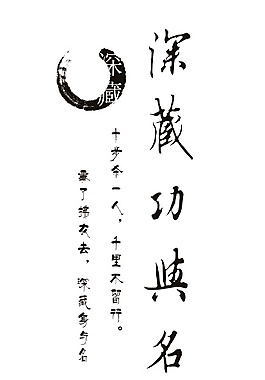 深藏功與名
深藏
十步杀一人，千里不留行。
事了拂衣去，深藏身与名